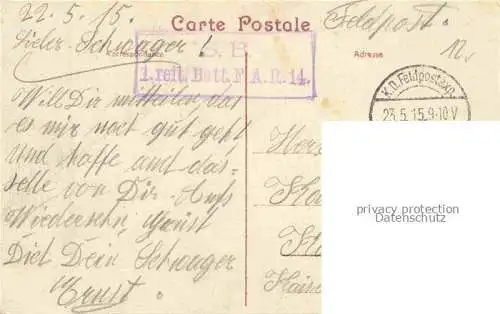 22.5.15.
Carte Postale
Feldpost.
Lieber Schwager!
Correspondance
Adresse
S. B.
1. reit. Batt. F. A. R. 14.
K.D. Feldpostexp.
23.5.15.9-10V
Will Dir mitteilen das
es mir noch gut geht
und hoffe auch das-
selle von Dir. Aufs
Wiedersehn grüst
Dich Dein Schwager
Ernst.
Herr
Kais
privacy protection
Datenschutz